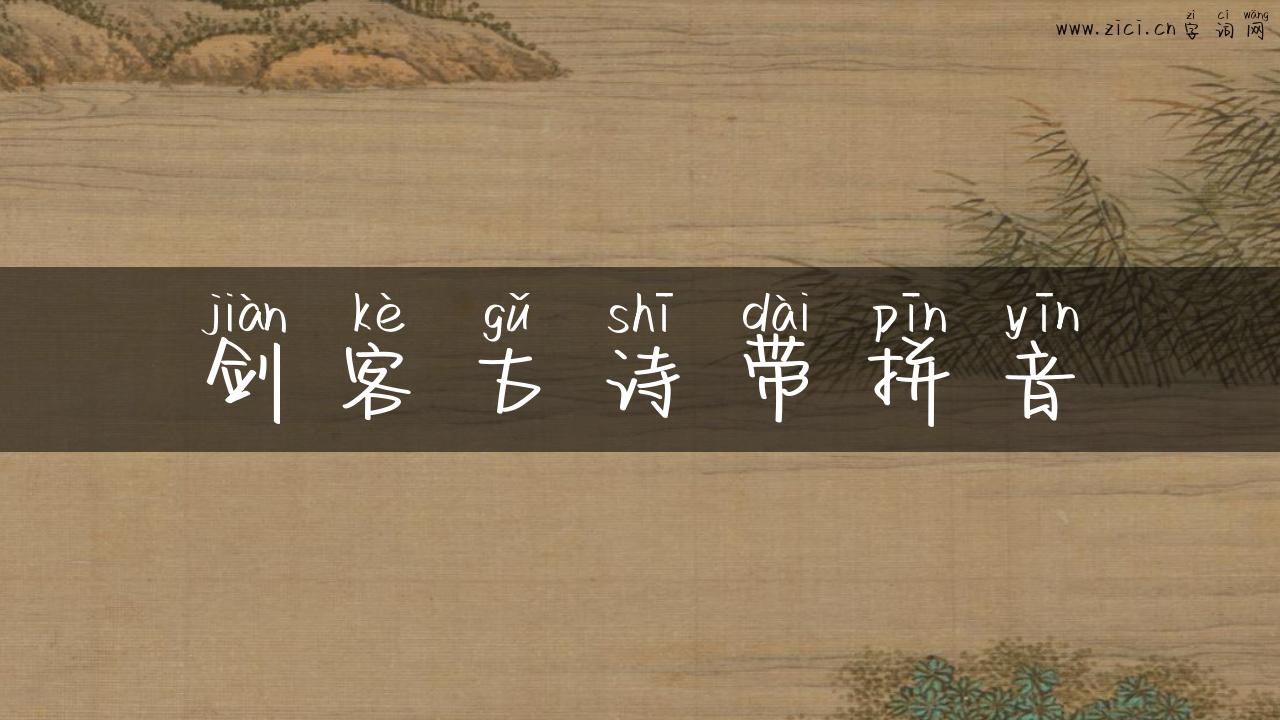 zì cí wǎng
www.zici.cn 字词网
jiàn kè gǔ shī dài pīn yīn
剑客古诗带拼音